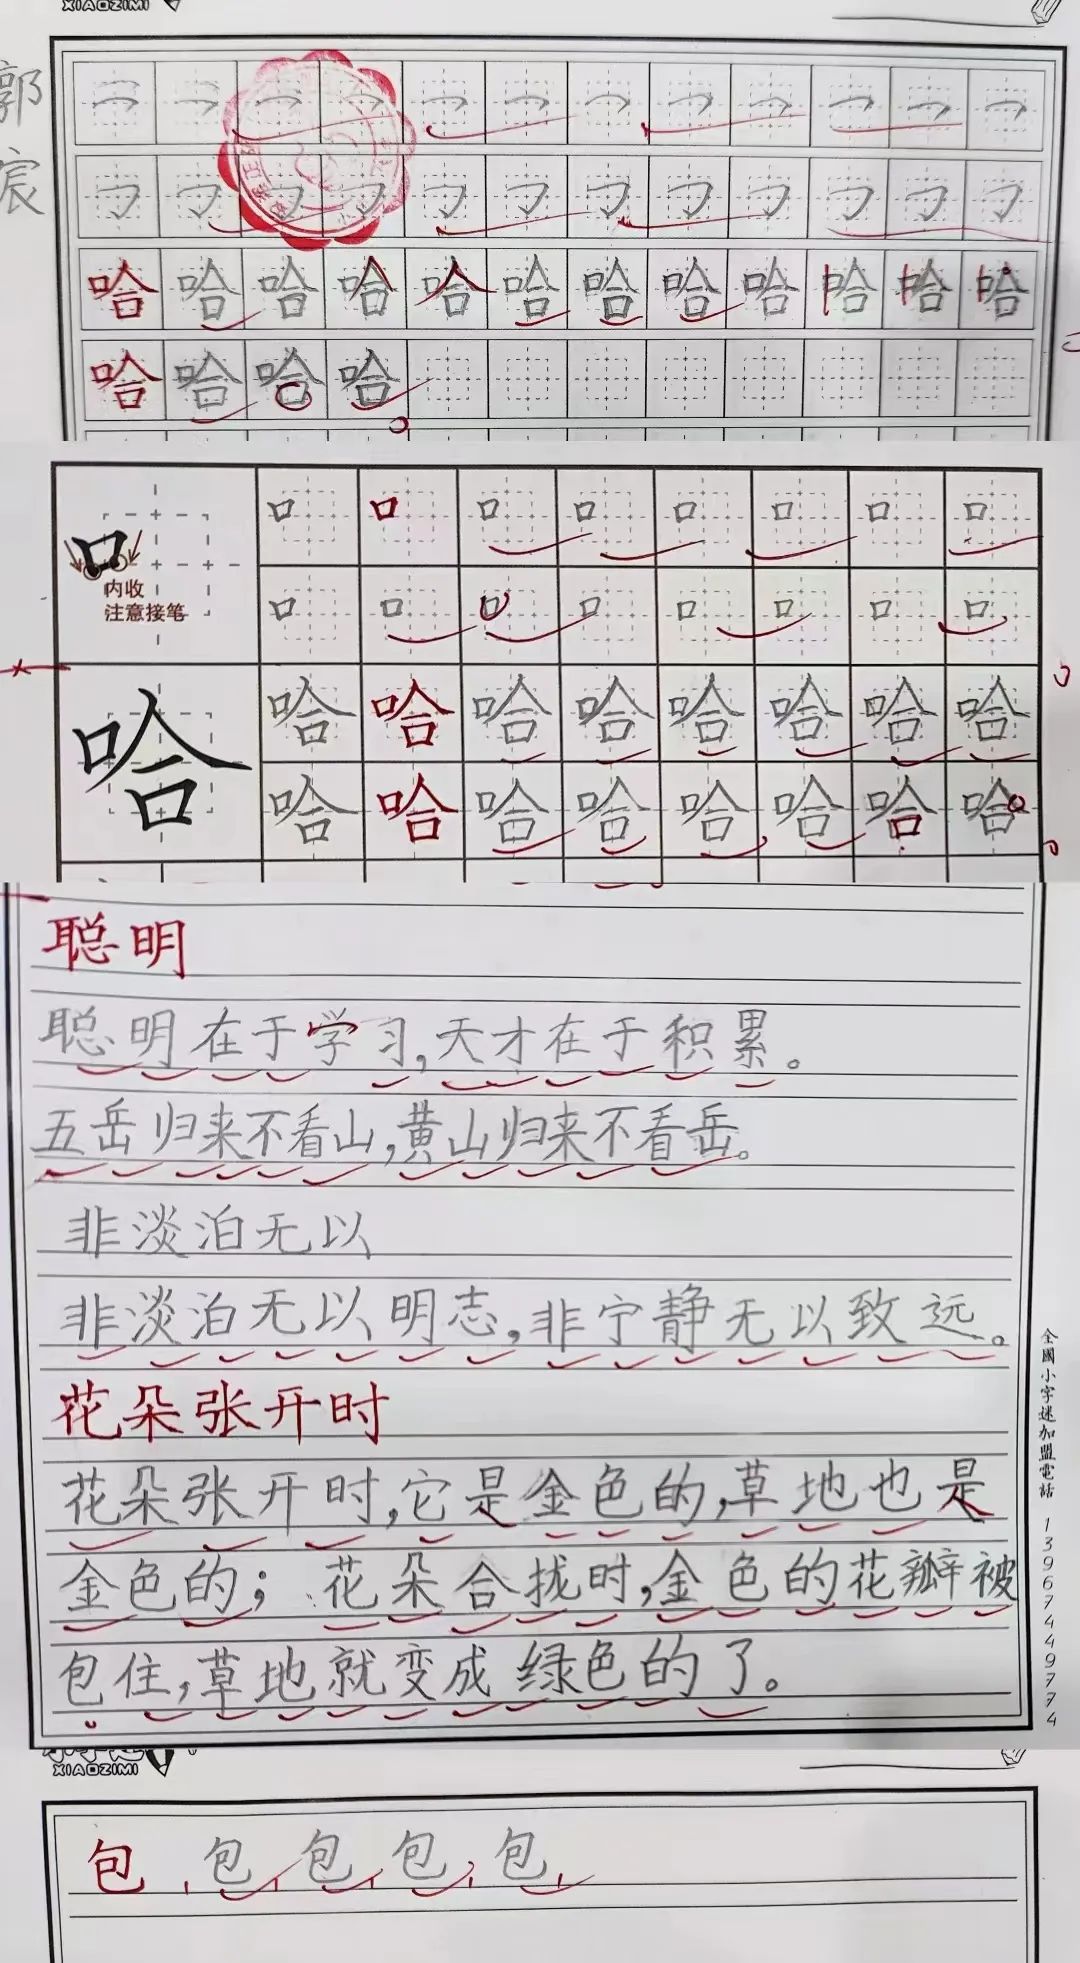 XIAOZIMI
郭宸
哈哈哈哈哈哈哈哈哈哈哈哈
哈哈哈哈
口口口口口口口口口
内收
注意接笔
口口口口口口口口
哈哈哈哈哈哈哈哈哈
哈哈哈哈哈哈哈哈
聪明
聪明在于学习,天才在于积累。
五岳归来不看山,黄山归来不看岳。
非淡泊无以
非淡泊无以明志,非宁静无以致远。
花朵张开时
花朵张开时,它是金色的,草地也是
金色的;花朵合拢时,金色的花瓣被
包住,草地就变成绿色的了。
全國小字迷加盟電話 13967449774
XIAOZIMI
包包包包包